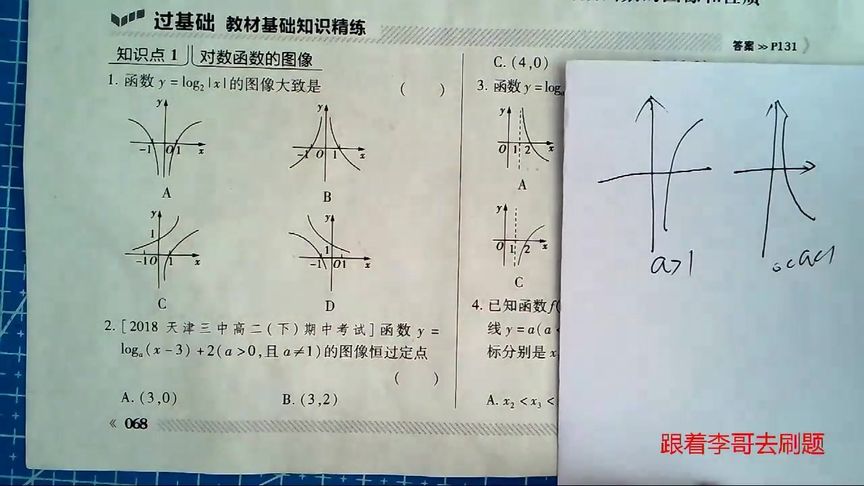 过基础 教材基础知识精练
知识点1 对数函数的图像
1. 函数 y=log₂|x|的图像大致是 ( )
y
-1 O 1 x
A
y
-1 O 1 x
B
y
1
-1 O 1 x
C
y
1
-1 O 1 x
D
2. [2018 天津三中高二(下)期中考试]函数 y=
logₐ(x-3)+2(a>0,且 a≠1)的图像恒过定点
( )
A. (3,0) B. (3,2)
068
答案 >> P131
C. (4,0)
3. 函数 y=log
y
O 1 2 x
A
y
O 1 2 x
C
4. 已知函数 f(
线 y=a(a
标分别是 x
A. x₂<x₃<
a>1
0<a<1
跟着李哥去刷题